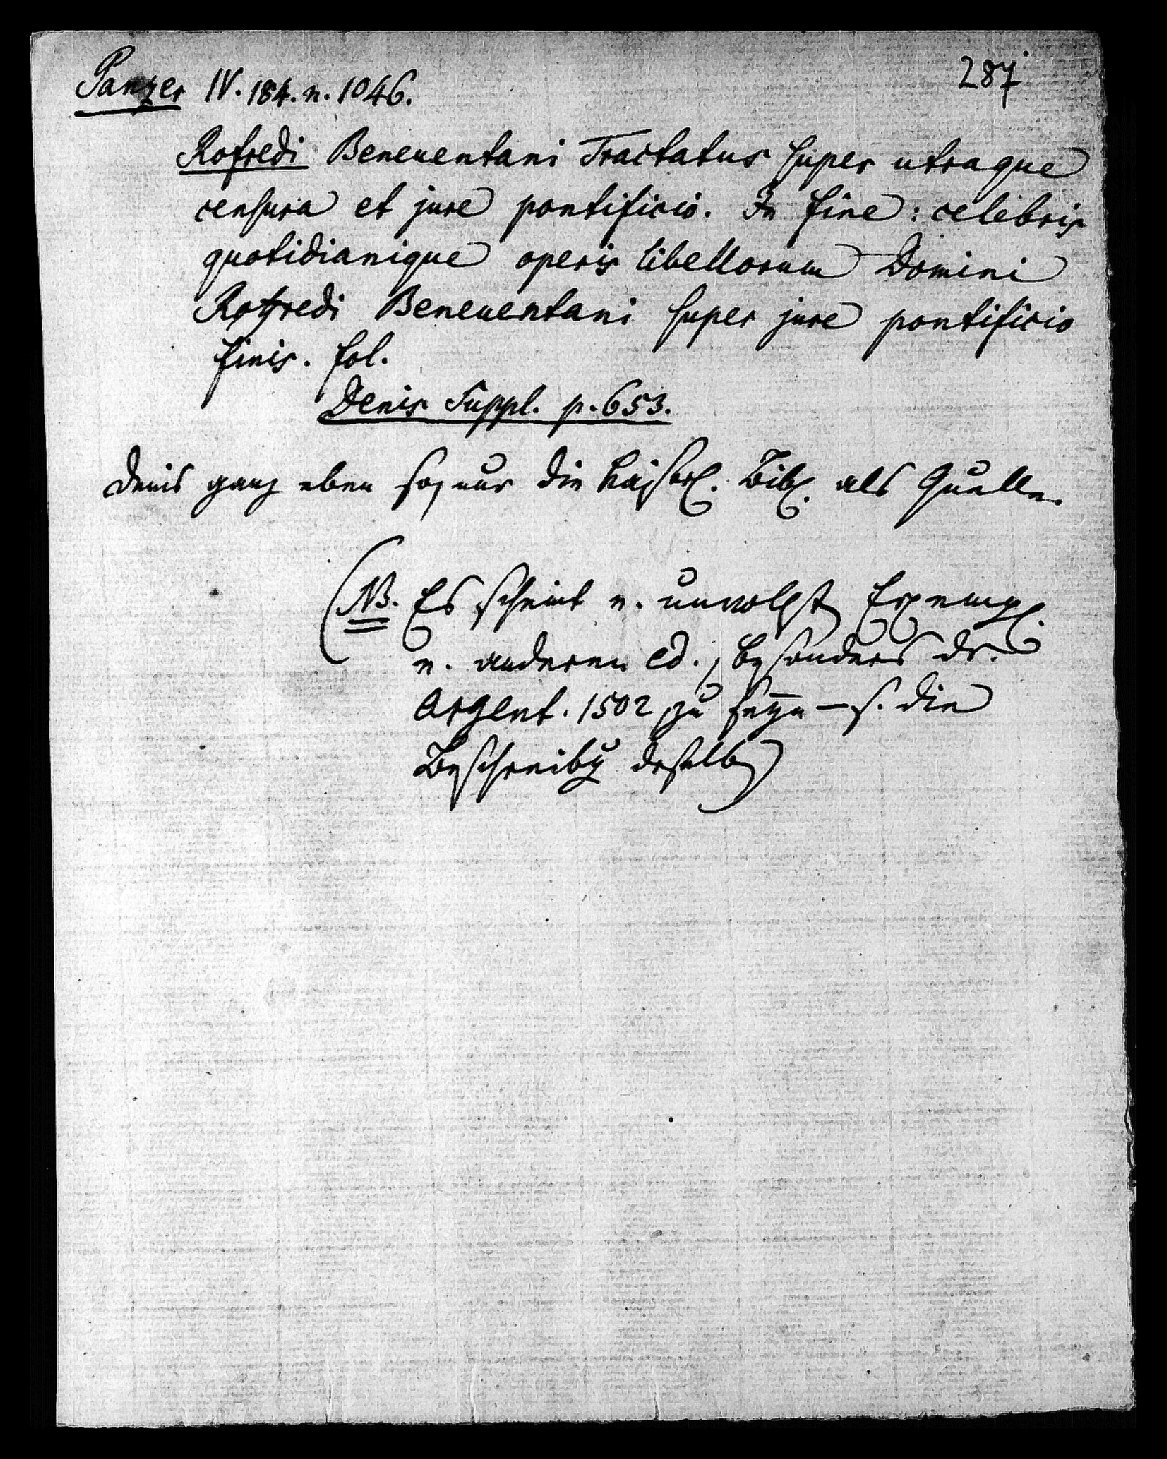 287
Panzer IV. 184. n. 1046.
Rofredi Beneuentani Tractatus super utraque
censura et jure pontificio. In fine: celebris
quotidianique operis libellorum Domini
Roffredi Beneuentani super jure pontificio
finis. fol.
Denis Suppl. p. 653.
Denis ganz eben so, nur die Kaiserl. Bibl. als Quelle.
(NB. Es scheint e. unvollst. Exempl.
e. anderen ed., besonders dr.
Argent. 1502 zu seyn – s. die
Beschreibg deselb)